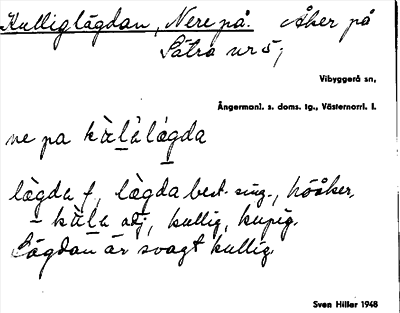 Kulliglägdan, Nere på. Åker på
Sätra nr 5,
Vibyggerå sn,
Ångermanl. s. doms. tg., Västernorrl. l.
ne pa kùlàlǽgda
lægda f, lægda best. sing., höåker,
– kùla adj, kullig, kupig.
Lägdan är svagt kullig.
Sven Hiller 1948